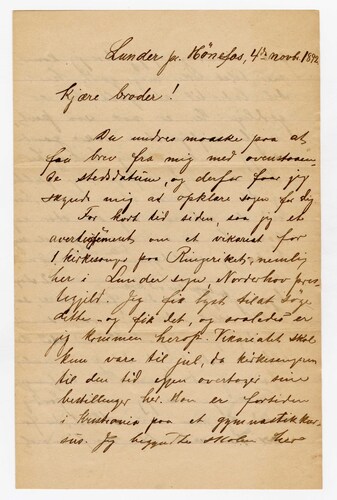 Lunder pr. Hönefos, 4de novb. 1892
Kjære broder!
Du undres maaske paa at
faa brev fra mig med ovenstaaen-
de stedsdatum, og derfor faar jeg
skynde mig at opklare sagen for dig
For kort tid siden, saa jeg et
avertissement om et vikariat for
1 kirkesanger paa Ringeriket, nemlig
her i Lunder sogn, Norderhov præs-
tegjeld. Jeg fik lyst til at söge
dette og fik det, og saaledes er
jeg kommen herop. Vikariatet skal
kun vare til jul, da kirkesangeren
til den tid igjen overtager sine
bestillinger her. Han er for tiden
i Kristiania paa et gymnastikkur-
sus. Jeg begyndte skolen her